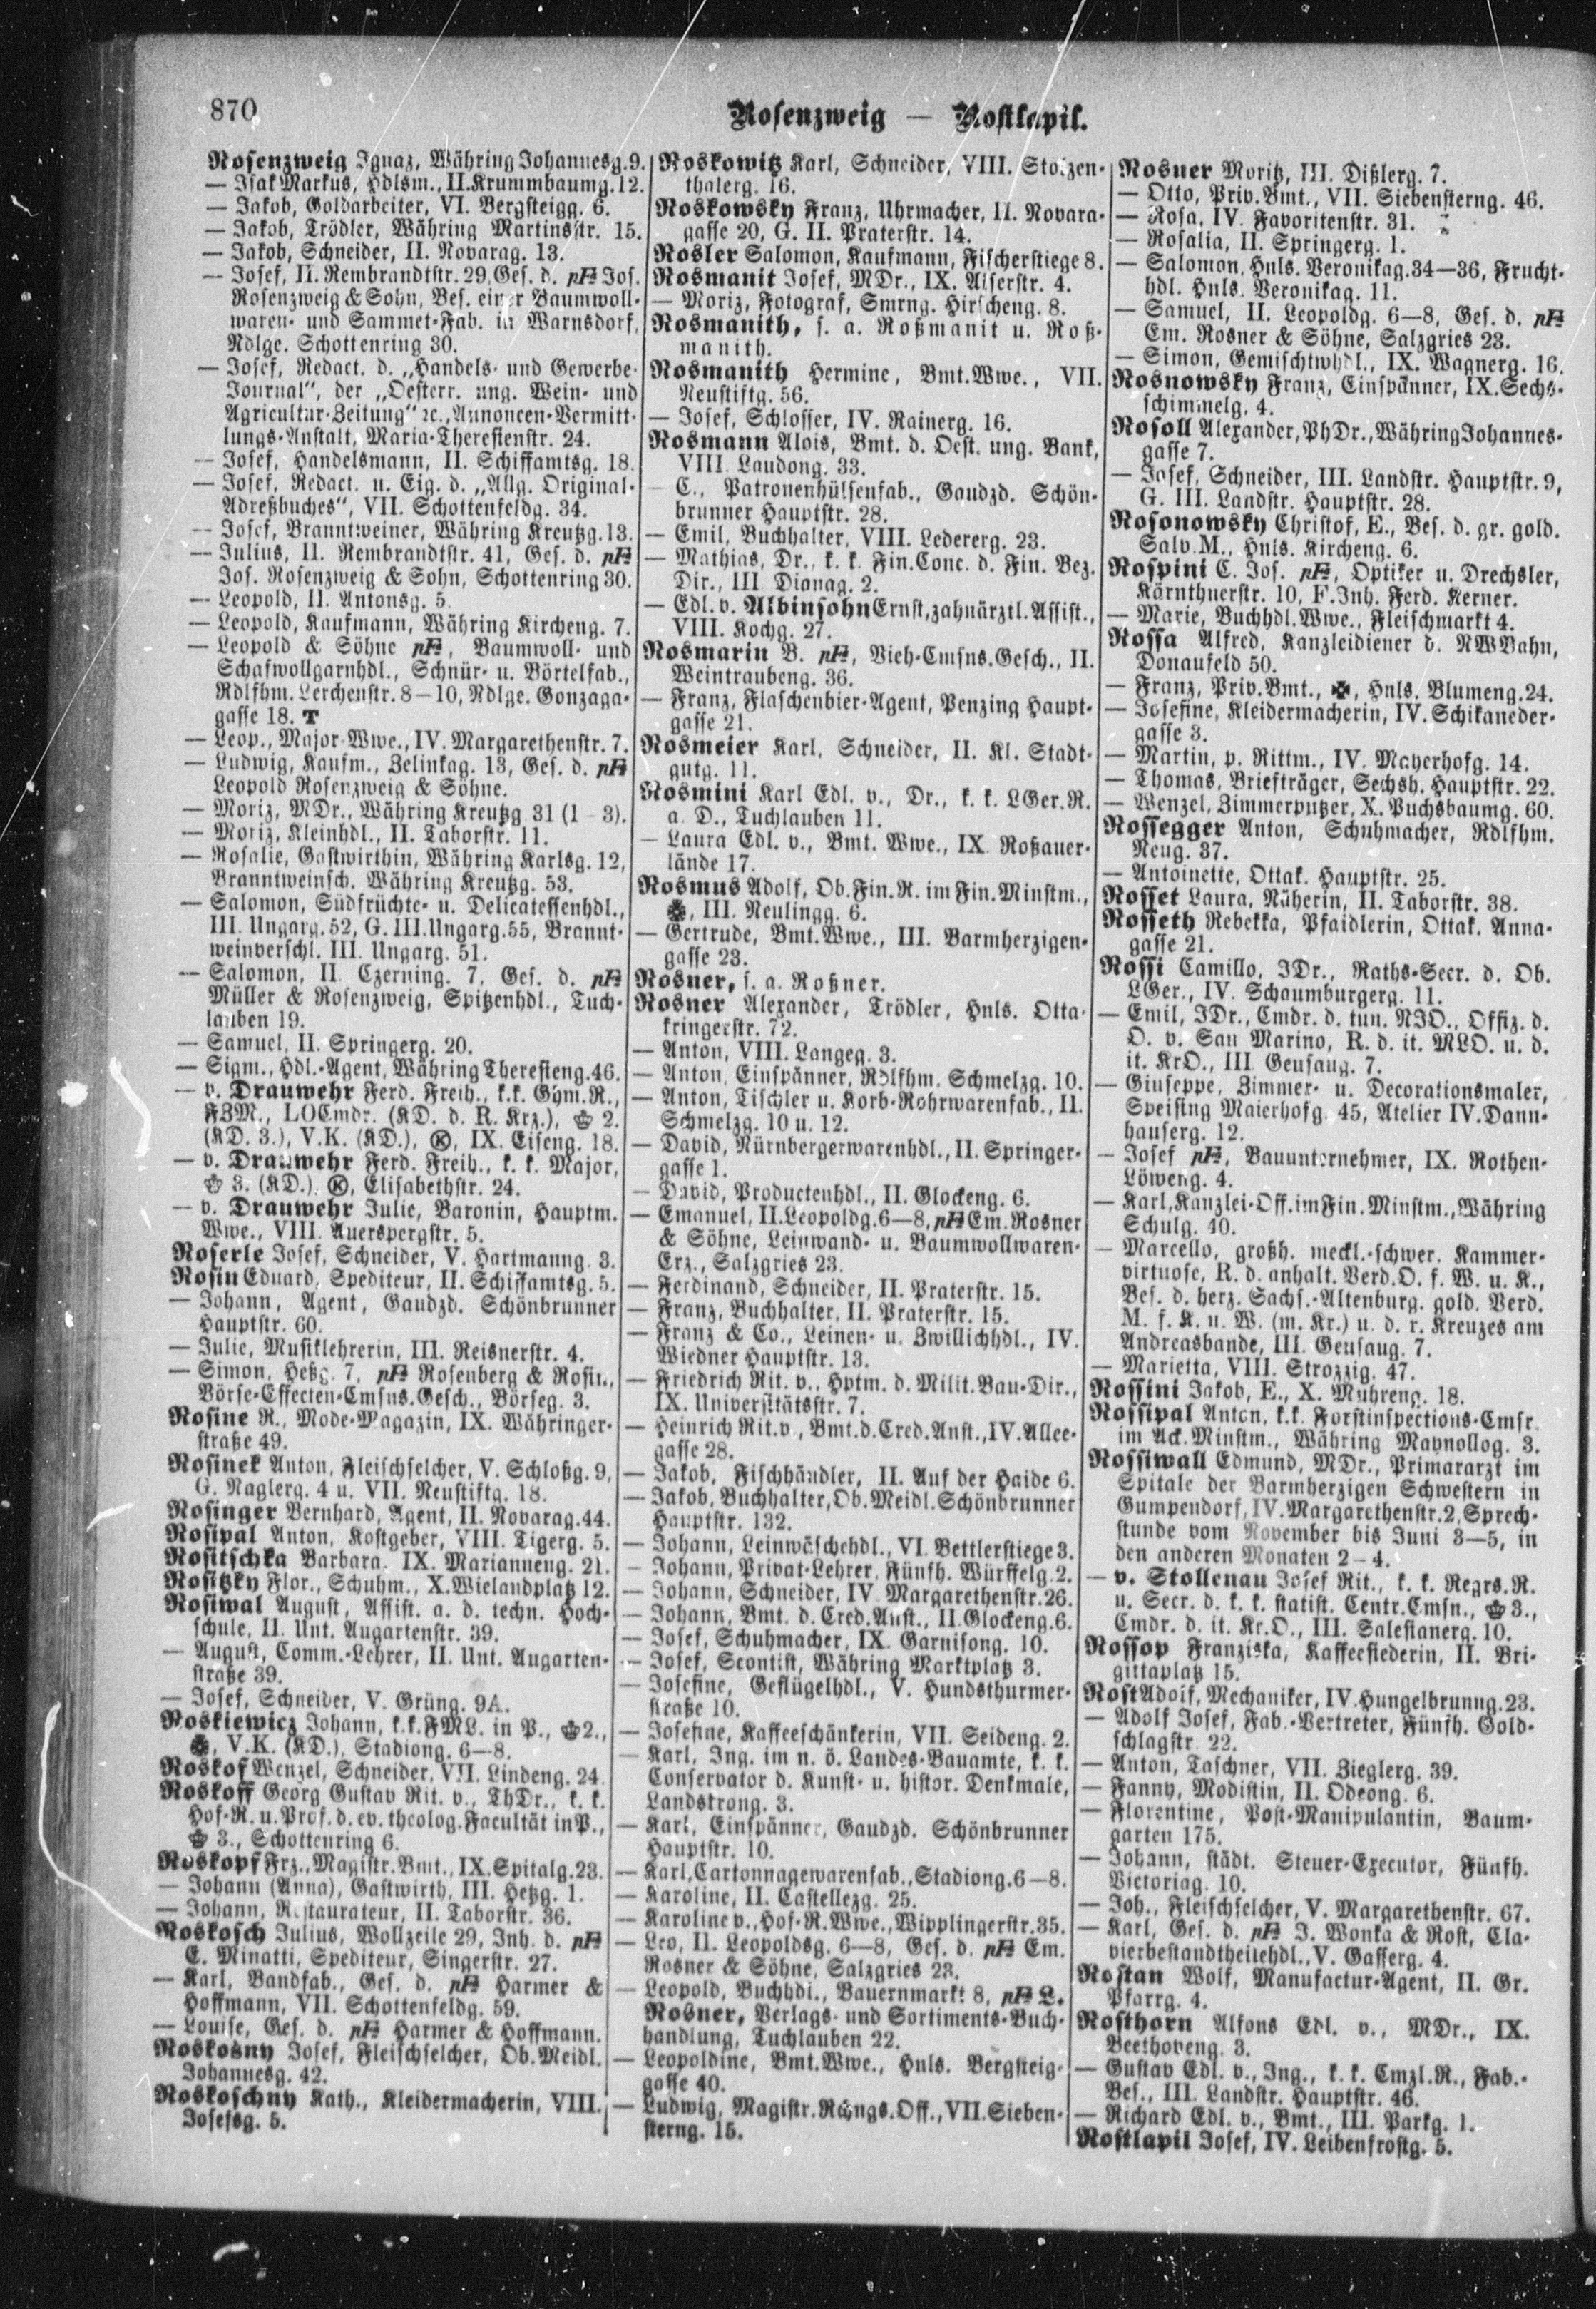 870
Rosenzweig — Rostlapil.
Rosenzweig Ignaz, Währing Johannesg. 9.
— Isak Markus, Hdlsm., II. Krummbaumg. 12.
— Jakob, Goldarbeiter, VI. Bergsteigg. 6.
— Jakob, Trödler, Währing Martinsstr. 15.
— Jakob, Schneider, II. Novarag. 13.
— Josef, II. Rembrandtstr. 29, Ges. d. pFa Jos.
Rosenzweig & Sohn, Bes. einer Baumwoll-
waren- und Sammet-Fab. in Warnsdorf,
Ndlge. Schottenring 30.
— Josef, Redact. d. „Handels- und Gewerbe-
Journal", der „Oesterr. ung. Wein- und
Agricultur-Zeitung" ꝛc., Annoncen-Vermitt-
lungs-Anstalt, Maria-Theresienstr. 24.
— Josef, Handelsmann, II. Schiffamtsg. 18.
— Josef, Redact. u. Eig. d. „Allg. Original-
Adreßbuches", VII. Schottenfeldg. 34.
— Josef, Branntweiner, Währing Kreutzg. 13.
— Julius, II. Rembrandtstr. 41, Ges. d. pFa
Jos. Rosenzweig & Sohn, Schottenring 30.
— Leopold, II. Antonsg. 5.
— Leopold, Kaufmann, Währing Kircheng. 7.
— Leopold & Söhne pFa, Baumwoll- und
Schafwollgarnhdl., Schnür- u. Börtelfab.,
Rdlfhm. Lerchenstr. 8—10, Ndlge. Gonzaga-
gasse 18. T
— Leop., Major-Wwe., IV. Margarethenstr. 7.
— Ludwig, Kaufm., Zelinkag. 13, Ges. d. pFa
Leopold Rosenzweig & Söhne.
— Moriz, MDr., Währing Kreutzg 31 (1—3).
— Moriz, Kleinhdl., II. Taborstr. 11.
— Rosalie, Gastwirthin, Währing Karlsg. 12,
Branntweinsch. Währing Kreutzg. 53.
— Salomon, Südfrüchte- u. Delicatessenhdl.,
III. Ungarg. 52, G. III. Ungarg. 55, Brannt-
weinverschl. III. Ungarg. 51.
— Salomon, II. Czerning. 7, Ges. d. pFa
Müller & Rosenzweig, Spitzenhdl., Tuch-
lauben 19.
— Samuel, II. Springerg. 20.
— Sigm., Hdl.-Agent, Währing Theresieng. 46.
— v. Drauwehr Ferd. Freih., k.k. Ghm.R.,
FZM., LOCmdr. (KD. d. R. Krz.), ♔ 2.
(KD. 3.), V.K. (KD.), Ⓚ, IX. Eiseng. 18.
— v. Drauwehr Ferd. Freih., k. k. Major,
♔ 3. (KD.), Ⓚ, Elisabethstr. 24.
— v. Drauwehr Julie, Baronin, Hauptm.
Wwe., VIII. Auerspergstr. 5.
Roserle Josef, Schneider, V. Hartmanng. 3.
Rosin Eduard, Spediteur, II. Schiffamtsg. 5.
— Johann, Agent, Gaudzd. Schönbrunner
Hauptstr. 60.
— Julie, Musiklehrerin, III. Reisnerstr. 4.
— Simon, Heßg. 7, pFa Rosenberg & Rosin,
Börse-Effecten-Cmsns.Gesch., Börseg. 3.
Rosine R., Mode-Magazin, IX. Währinger-
straße 49.
Rosinek Anton, Fleischselcher, V. Schloßg. 9,
G. Naglerg. 4 u. VII. Neustiftg. 18.
Rosinger Bernhard, Agent, II. Novarag. 44.
Rosipal Anton, Kostgeber, VIII. Tigerg. 5.
Rositschka Barbara, IX. Marianneng. 21.
Rositzky Flor., Schuhm., X. Wielandplatz 12.
Rosiwal August, Assist. a. d. techn. Hoch-
schule, II. Unt. Augartenstr. 39.
— August, Comm.-Lehrer, II. Unt. Augarten-
straße 39.
— Josef, Schneider, V. Grüng. 9A.
Roskiewicz Johann, k.k. FML. in P., ♔ 2.,
✠, V.K. (KD.), Stadiong. 6—8.
Roskof Wenzel, Schneider, VII. Lindeng. 24.
Roskoff Georg Gustav Rit. v., ThDr., k. k.
Hof-R. u. Prof. d. ev. theolog. Facultät in P.,
♔ 3., Schottenring 6.
Roskopf Frz., Magistr. Bmt., IX. Spitalg. 23.
— Johann (Anna), Gastwirth, III. Hetzg. 1.
— Johann, Restaurateur, II. Taborstr. 36.
Roskosch Julius, Wollzeile 29, Inh. d. pFa
E. Minatti, Spediteur, Singerstr. 27.
— Karl, Bandfab., Ges. d. pFa Harmer &
Hoffmann, VII. Schottenfeldg. 59.
— Louise, Ges. d. pFa Harmer & Hoffmann.
Roskosny Josef, Fleischselcher, Ob. Meidl.
Johannesg. 42.
Roskoschny Kath., Kleidermacherin, VIII.
Josefsg. 5.
Roskowitz Karl, Schneider, VIII. Stolzen-
thalerg. 16.
Roskowsky Franz, Uhrmacher, II. Novara-
gasse 20, G. II. Praterstr. 14.
Rosler Salomon, Kaufmann, Fischerstiege 8.
Rosmanit Josef, MDr., IX. Alserstr. 4.
— Moriz, Fotograf, Smrng. Hirscheng. 8.
Rosmanith, s. a. Roßmanit u. Roß-
manith.
Rosmanith Hermine, Bmt.Wwe., VII.
Neustiftg. 56.
— Josef, Schlosser, IV. Rainerg. 16.
Rosmann Alois, Bmt. d. Oest. ung. Bank,
VIII. Laudong. 33.
— C., Patronenhülsenfab., Gaudzd. Schön-
brunner Hauptstr. 28.
— Emil, Buchhalter, VIII. Ledererg. 23.
— Mathias, Dr., k. k. Fin.Conc. d. Fin. Bez.
Dir., III. Dianag. 2.
— Edl. v. Albinsohn Ernst, zahnärztl. Assist.,
VIII. Kochg. 27.
Rosmarin B. pFa, Vieh-Cmsns.Gesch., II.
Weintraubeng. 36.
— Franz, Flaschenbier-Agent, Penzing Haupt-
gasse 21.
Rosmeier Karl, Schneider, II. Kl. Stadt-
gutg. 11.
Rosmini Karl Edl. v., Dr., k. k. LGer.R.
a. D., Tuchlauben 11.
— Laura Edl. v., Bmt. Wwe., IX. Roßauer-
lände 17.
Rosmus Adolf, Ob.Fin.R. im Fin.Minstm.,
✠, III. Neulingg. 6.
— Gertrude, Bmt.Wwe., III. Barmherzigen-
gasse 23.
Rosner, s. a. Roßner.
Rosner Alexander, Trödler, Hnls. Otta-
kringerstr. 72.
— Anton, VIII. Langeg. 3.
— Anton, Einspänner, Rdlfhm. Schmelzg. 10.
— Anton, Tischler u. Korb-Rohrwarenfab., II.
Schmelzg. 10 u. 12.
— David, Nürnbergerwarenhdl., II. Springer-
gasse 1.
— David, Productenhdl., II. Glockeng. 6.
— Emanuel, II. Leopoldg. 6—8, pFa Em. Rosner
& Söhne, Leinwand- u. Baumwollwaren-
Erz., Salzgries 23.
— Ferdinand, Schneider, II. Praterstr. 15.
— Franz, Buchhalter, II. Praterstr. 15.
— Franz & Co., Leinen- u. Zwillichhdl., IV.
Wiedner Hauptstr. 13.
— Friedrich Rit. v., Hptm. d. Milit. Bau-Dir.,
IX. Universitätsstr. 7.
— Heinrich Rit. v., Bmt. d. Cred. Anst., IV. Allee-
gasse 28.
— Jakob, Fischhändler, II. Auf der Haide 6.
— Jakob, Buchhalter, Ob. Meidl. Schönbrunner
Hauptstr. 132.
— Johann, Leinwäschehdl., VI. Bettlerstiege 3.
— Johann, Privat-Lehrer, Fünfh. Würffelg. 2.
— Johann, Schneider, IV. Margarethenstr. 26.
— Johann, Bmt. d. Cred. Anst., II. Glockeng. 6.
— Josef, Schuhmacher, IX. Garnisong. 10.
— Josef, Scontist, Währing Marktplatz 3.
— Josefine, Geflügelhdl., V. Hundsthurmer-
straße 10.
— Josefine, Kaffeeschänkerin, VII. Seideng. 2.
— Karl, Ing. im n. ö. Landes-Bauamte, k. k.
Conservator d. Kunst- u. histor. Denkmale,
Landstrong. 3.
— Karl, Einspänner, Gaudzd. Schönbrunner
Hauptstr. 10.
— Karl, Cartonnagewarenfab., Stadiong. 6—8.
— Karoline, II. Castellezg. 25.
— Karoline v., Hof-R.Wwe., Wipplingerstr. 35.
— Leo, II. Leopoldsg. 6—8, Ges. d. pFa Em.
Rosner & Söhne, Salzgries 23.
— Leopold, Buchhdl., Bauernmarkt 8, pFa L.
Rosner, Verlags- und Sortiments-Buch-
handlung, Tuchlauben 22.
— Leopoldine, Bmt.Wwe., Hnls. Bergsteig-
gasse 40.
— Ludwig, Magistr. Rchngs. Off., VII. Sieben-
sterng. 15.
Rosner Moritz, III. Dißlerg. 7.
— Otto, Priv. Bmt., VII. Siebensterng. 46.
— Rosa, IV. Favoritenstr. 31.
— Rosalia, II. Springerg. 1.
— Salomon, Hnls. Veronikag. 34—36, Frucht-
hdl. Hnls. Veronikag. 11.
— Samuel, II. Leopoldg. 6—8, Ges. d. pFa
Em. Rosner & Söhne, Salzgries 23.
— Simon, Gemischtwhdl., IX. Wagnerg. 16.
Rosnowsky Franz, Einspänner, IX. Sechs-
schimmelg. 4.
Rosoll Alexander, PhDr., Währing Johannes-
gasse 7.
— Josef, Schneider, III. Landstr. Hauptstr. 9,
G. III. Landstr. Hauptstr. 28.
Rosonowsky Christof, E., Bes. d. gr. gold.
Salv. M., Hnls. Kircheng. 6.
Rospini C. Jos. pFa, Optiker u. Drechsler,
Kärnthnerstr. 10, F. Inh. Ferd. Kerner.
— Marie, Buchhdl. Wwe., Fleischmarkt 4.
Rossa Alfred, Kanzleidiener d. NWBahn,
Donaufeld 50.
— Franz, Priv. Bmt., ✠, Hnls. Blumeng. 24.
— Josefine, Kleidermacherin, IV. Schikaneder-
gasse 3.
— Martin, p. Rittm., IV. Mayerhofg. 14.
— Thomas, Briefträger, Sechsh. Hauptstr. 22.
— Wenzel, Zimmerputzer, X. Puchsbaumg. 60.
Rossegger Anton, Schuhmacher, Rdlfhm.
Neug. 37.
— Antoinette, Ottak. Hauptstr. 25.
Rosset Laura, Näherin, II. Taborstr. 38.
Rosseth Rebekka, Pfaidlerin, Ottak. Anna-
gasse 21.
Rossi Camillo, JDr., Raths-Secr. d. Ob.
LGer., IV. Schaumburgerg. 11.
— Emil, JDr., Cmdr. d. tun. NJO., Offiz. d.
O. v. San Marino, R. d. it. MLO. u. d.
it. KrO., III. Geusaug. 7.
— Giuseppe, Zimmer- u. Decorationsmaler,
Speising Maierhofg. 45, Atelier IV. Dann-
hauserg. 12.
— Josef pFa, Bauunternehmer, IX. Rothen-
Löweng. 4.
— Karl, Kanzlei-Off. im Fin. Minstm., Währing
Schulg. 40.
— Marcello, großh. meckl.-schwer. Kammer-
virtuose, R. d. anhalt. Verd.O. f. W. u. K.,
Bes. d. herz. Sachs.-Altenburg. gold. Verd.
M. f. K. u. W. (m. Kr.) u. d. r. Kreuzes am
Andreasbande, III. Geusaug. 7.
— Marietta, VIII. Strozzig. 47.
Rossini Jakob, E., X. Muhreng. 18.
Rossipal Anton, k.k. Forstinspections-Cmsr.
im Ack. Minstm., Währing Maynollog. 3.
Rossiwall Edmund, MDr., Primararzt im
Spitale der Barmherzigen Schwestern in
Gumpendorf, IV. Margarethenstr. 2, Sprech-
stunde vom November bis Juni 3—5, in
den anderen Monaten 2—4.
— v. Stollenau Josef Rit., k. k. Regrs.R.
u. Secr. d. k. k. statist. Centr.Cmsn., ♔ 3.,
Cmdr. d. it. Kr.O., III. Salesianerg. 10.
Rossop Franziska, Kaffeesiederin, II. Bri-
gittaplatz 15.
Rost Adolf, Mechaniker, IV. Hungelbrunng. 23.
— Adolf Josef, Fab.-Vertreter, Fünfh. Gold-
schlagstr. 22.
— Anton, Taschner, VII. Zieglerg. 39.
— Fanny, Modistin, II. Odeong. 6.
— Florentine, Post-Manipulantin, Baum-
garten 175.
— Johann, städt. Steuer-Executor, Fünfh.
Victoriag. 10.
— Joh., Fleischselcher, V. Margarethenstr. 67.
— Karl, Ges. d. pFa J. Wonka & Rost, Cla-
vierbestandtheilehdl., V. Gasserg. 4.
Rostan Wolf, Manufactur-Agent, II. Gr.
Pfarrg. 4.
Rosthorn Alfons Edl. v., MDr., IX.
Beethoveng. 3.
— Gustav Edl. v., Ing., k. k. Cmzl.R., Fab.-
Bes., III. Landstr. Hauptstr. 46.
— Richard Edl. v., Bmt., III. Parkg. 1.
Rostlapil Josef, IV. Leibenfrostg. 5.